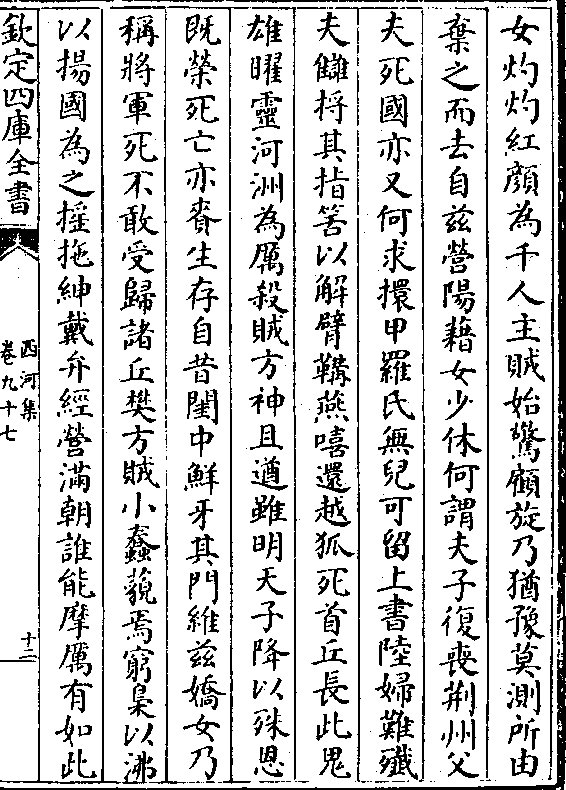 女灼灼紅顔為千人主賊始驚顧旋乃猶豫莫測所由
棄之而去自兹營陽藉女少休何謂夫子復喪荆州父
夫死國亦又何求擐甲羅氏無兒可留上書陸婦難殲
夫讎捋其指筈以解臂韝燕嘻還越狐死首丘長此鬼
雄曜靈河洲為厲殺賊方神且遒雖明天子降以殊恩
既榮死亡亦賚生存自昔閨中鮮牙其門維兹嬌女乃
稱將軍死不敢受歸諸丘樊方賊小蠢藐焉窮梟以沸
以揚國為之摇拖紳戴弁經營滿朝誰能摩厲有如此
欽定四庫全書
西河集
卷九十七
十二